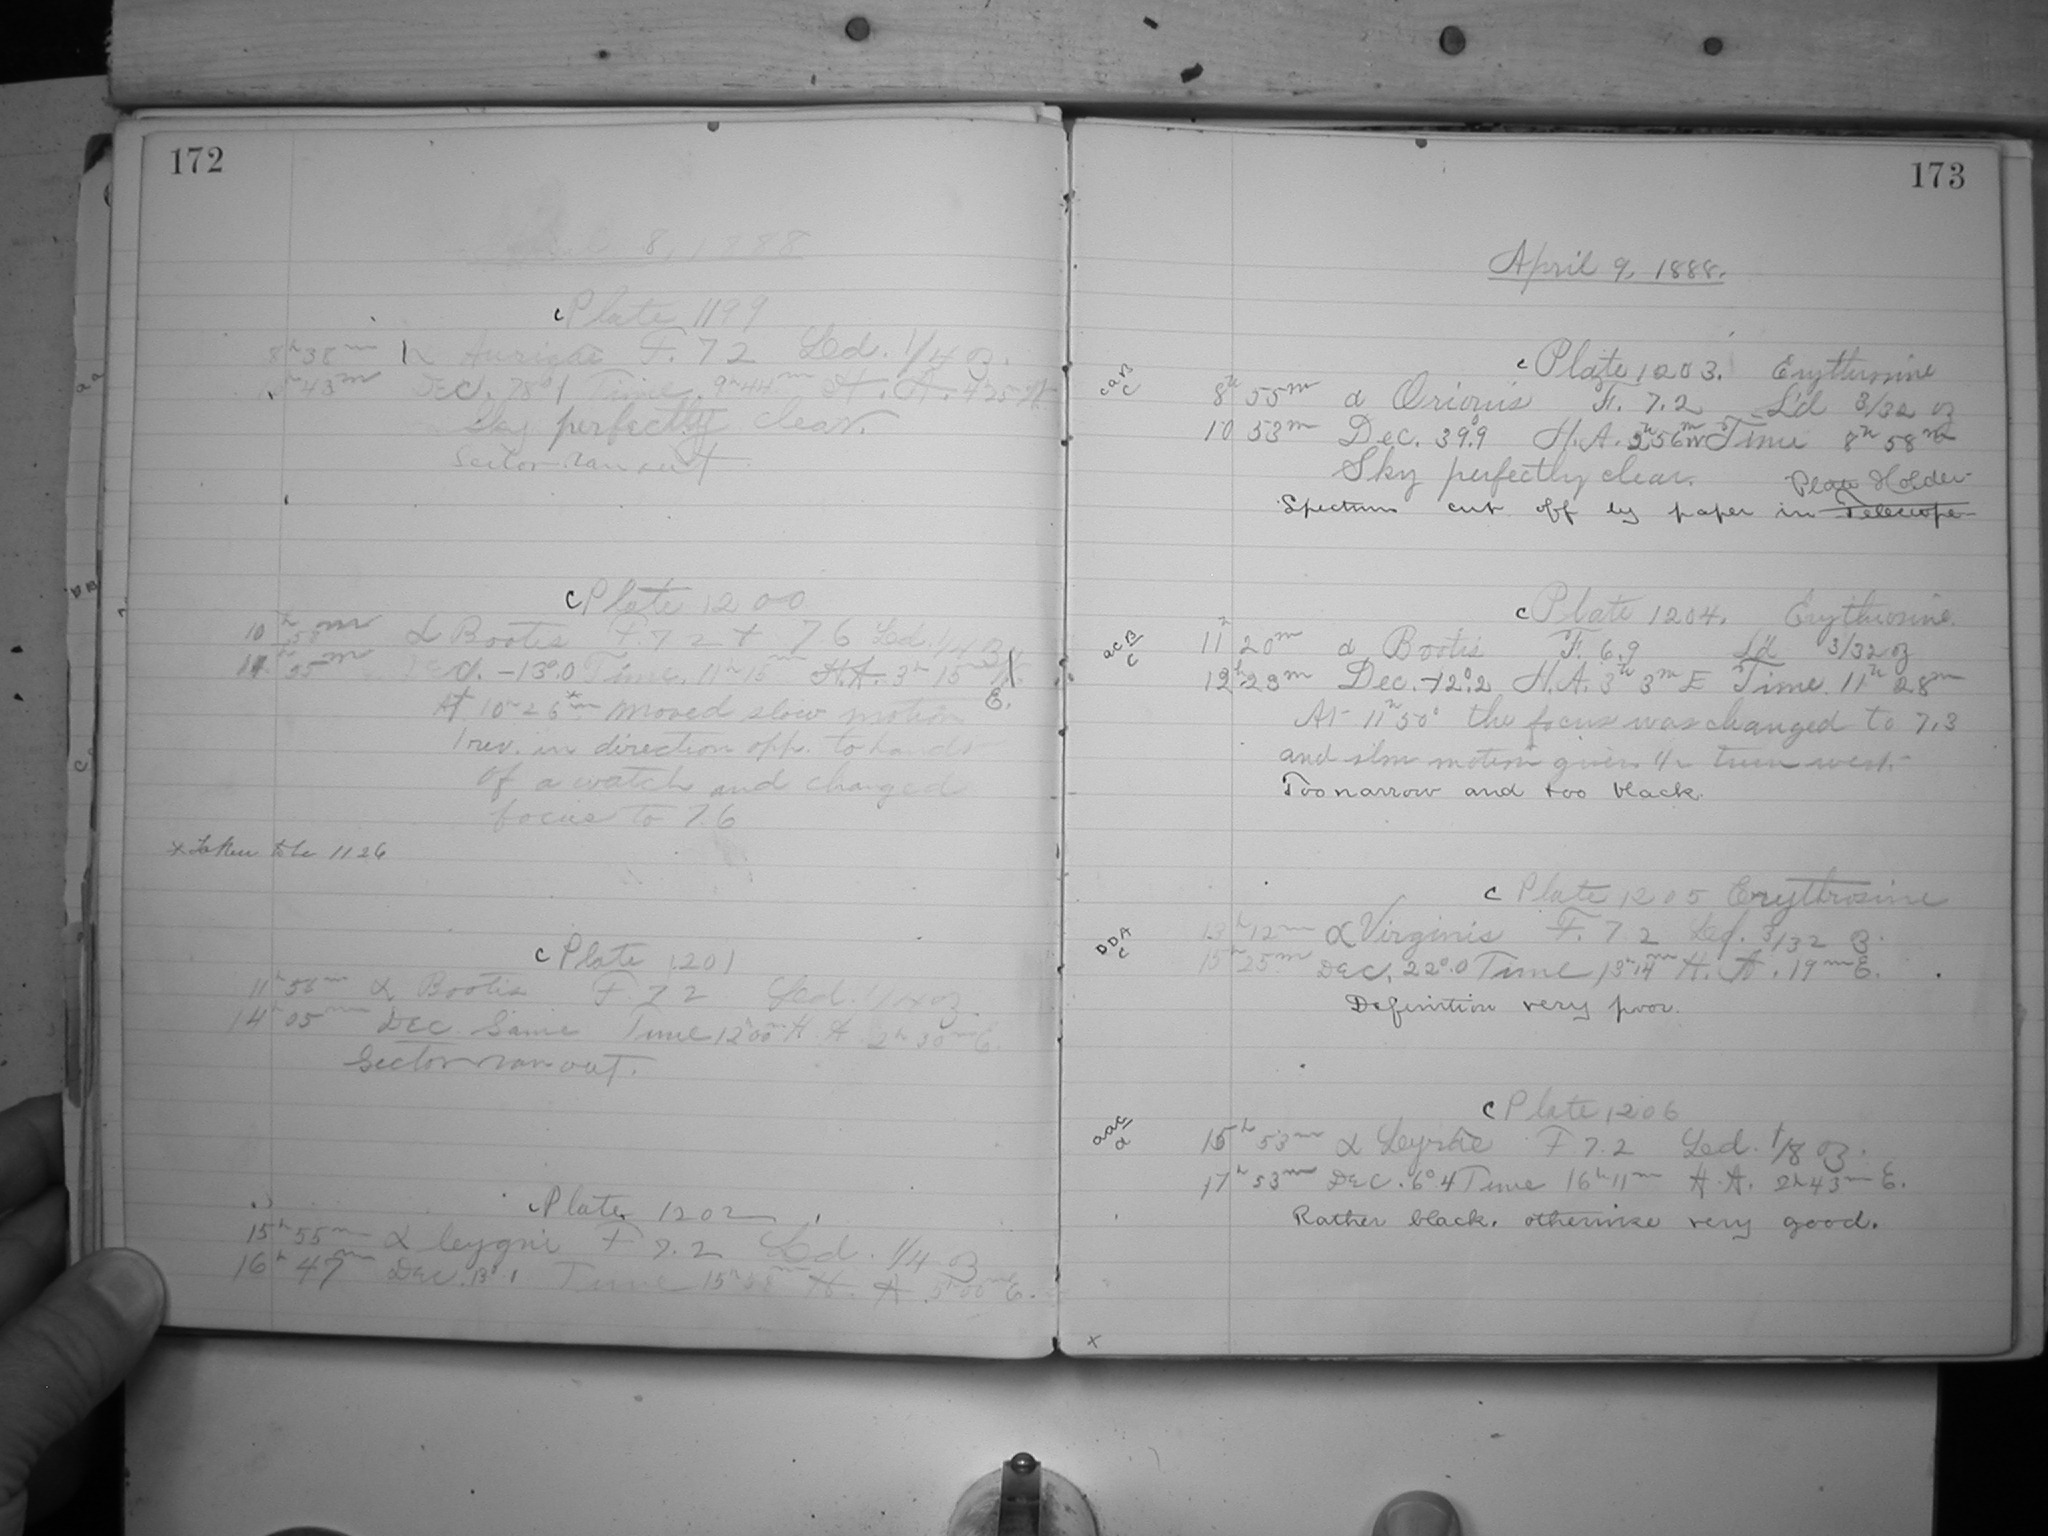 172
April 8, 1888
c Plate 1199
8h 38m α Aurigae F. 7.2 Led. 1/4 oz.
43m Dec. 78°.1 Time. 9h 44m H. A. 4 25m W
Sky perfectly clear.
Sector ran out
c Plate 1200
10h 58m α Bootis F. 7.2 + 7.6 Led. 1/4 oz
11h 55m Dec. -13°.0 Time. 11h 15m H.A. 3h 15m E.
At 10h 26*m moved slow motion
1 rev. in direction opp. to hands
of a watch and changed
focus to 7.6
x Taken to be 11 26
c Plate 1201
11h 56m α Bootis F. 7.2 Led. oz
14h 05m Dec. Same Time 12h 00m H. A. 2h 30m E.
Sector ran out.
c Plate 1202
15h 55m α Cygni F 7.2 Led. 1/4 oz
16h 47m Dec. 13°.1 Time 15h 58m H. A. 5h 00m E.
173
April 9, 1888.
c Plate 1203. Erythrosine
caB/C 8h 55m α Orionis F. 7.2 L'd 3/32 oz
10 53m Dec. 39°.9 H.A. 2h 56m W Time 8h 58m
Sky perfectly clear. Plate Holder
Spectrum cut off by paper in Telescope
c Plate 1204. Erythrosine.
acB/C 11h 20m α Bootis F. 6.9 L'd 3/32 oz
12h 23m Dec. -12°.2 H.A. 3h 3m E Time. 11h 28m
At 11h 50° the focus was changed to 7.3
and slow motion given turn west.
Too narrow and too black.
c Plate 1205 Erythrosine
DDA/C 13h 12m α Virginis F. 7.2 Led. 3/32 oz.
15h 25m Dec. 22°.0 Time 13h 14m H. A. 19m E.
Definition very poor.
c Plate 1206
aac/a 15h 53m α Leyrae F 7.2 Led. 1/8 oz.
17h 53m Dec. 6°.4 Time 16h 11m H. A. 2h 43m E.
Rather black. otherwise very good.
x